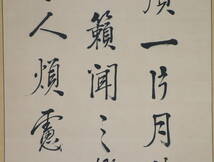 一片月
籟聞之
人煩慮